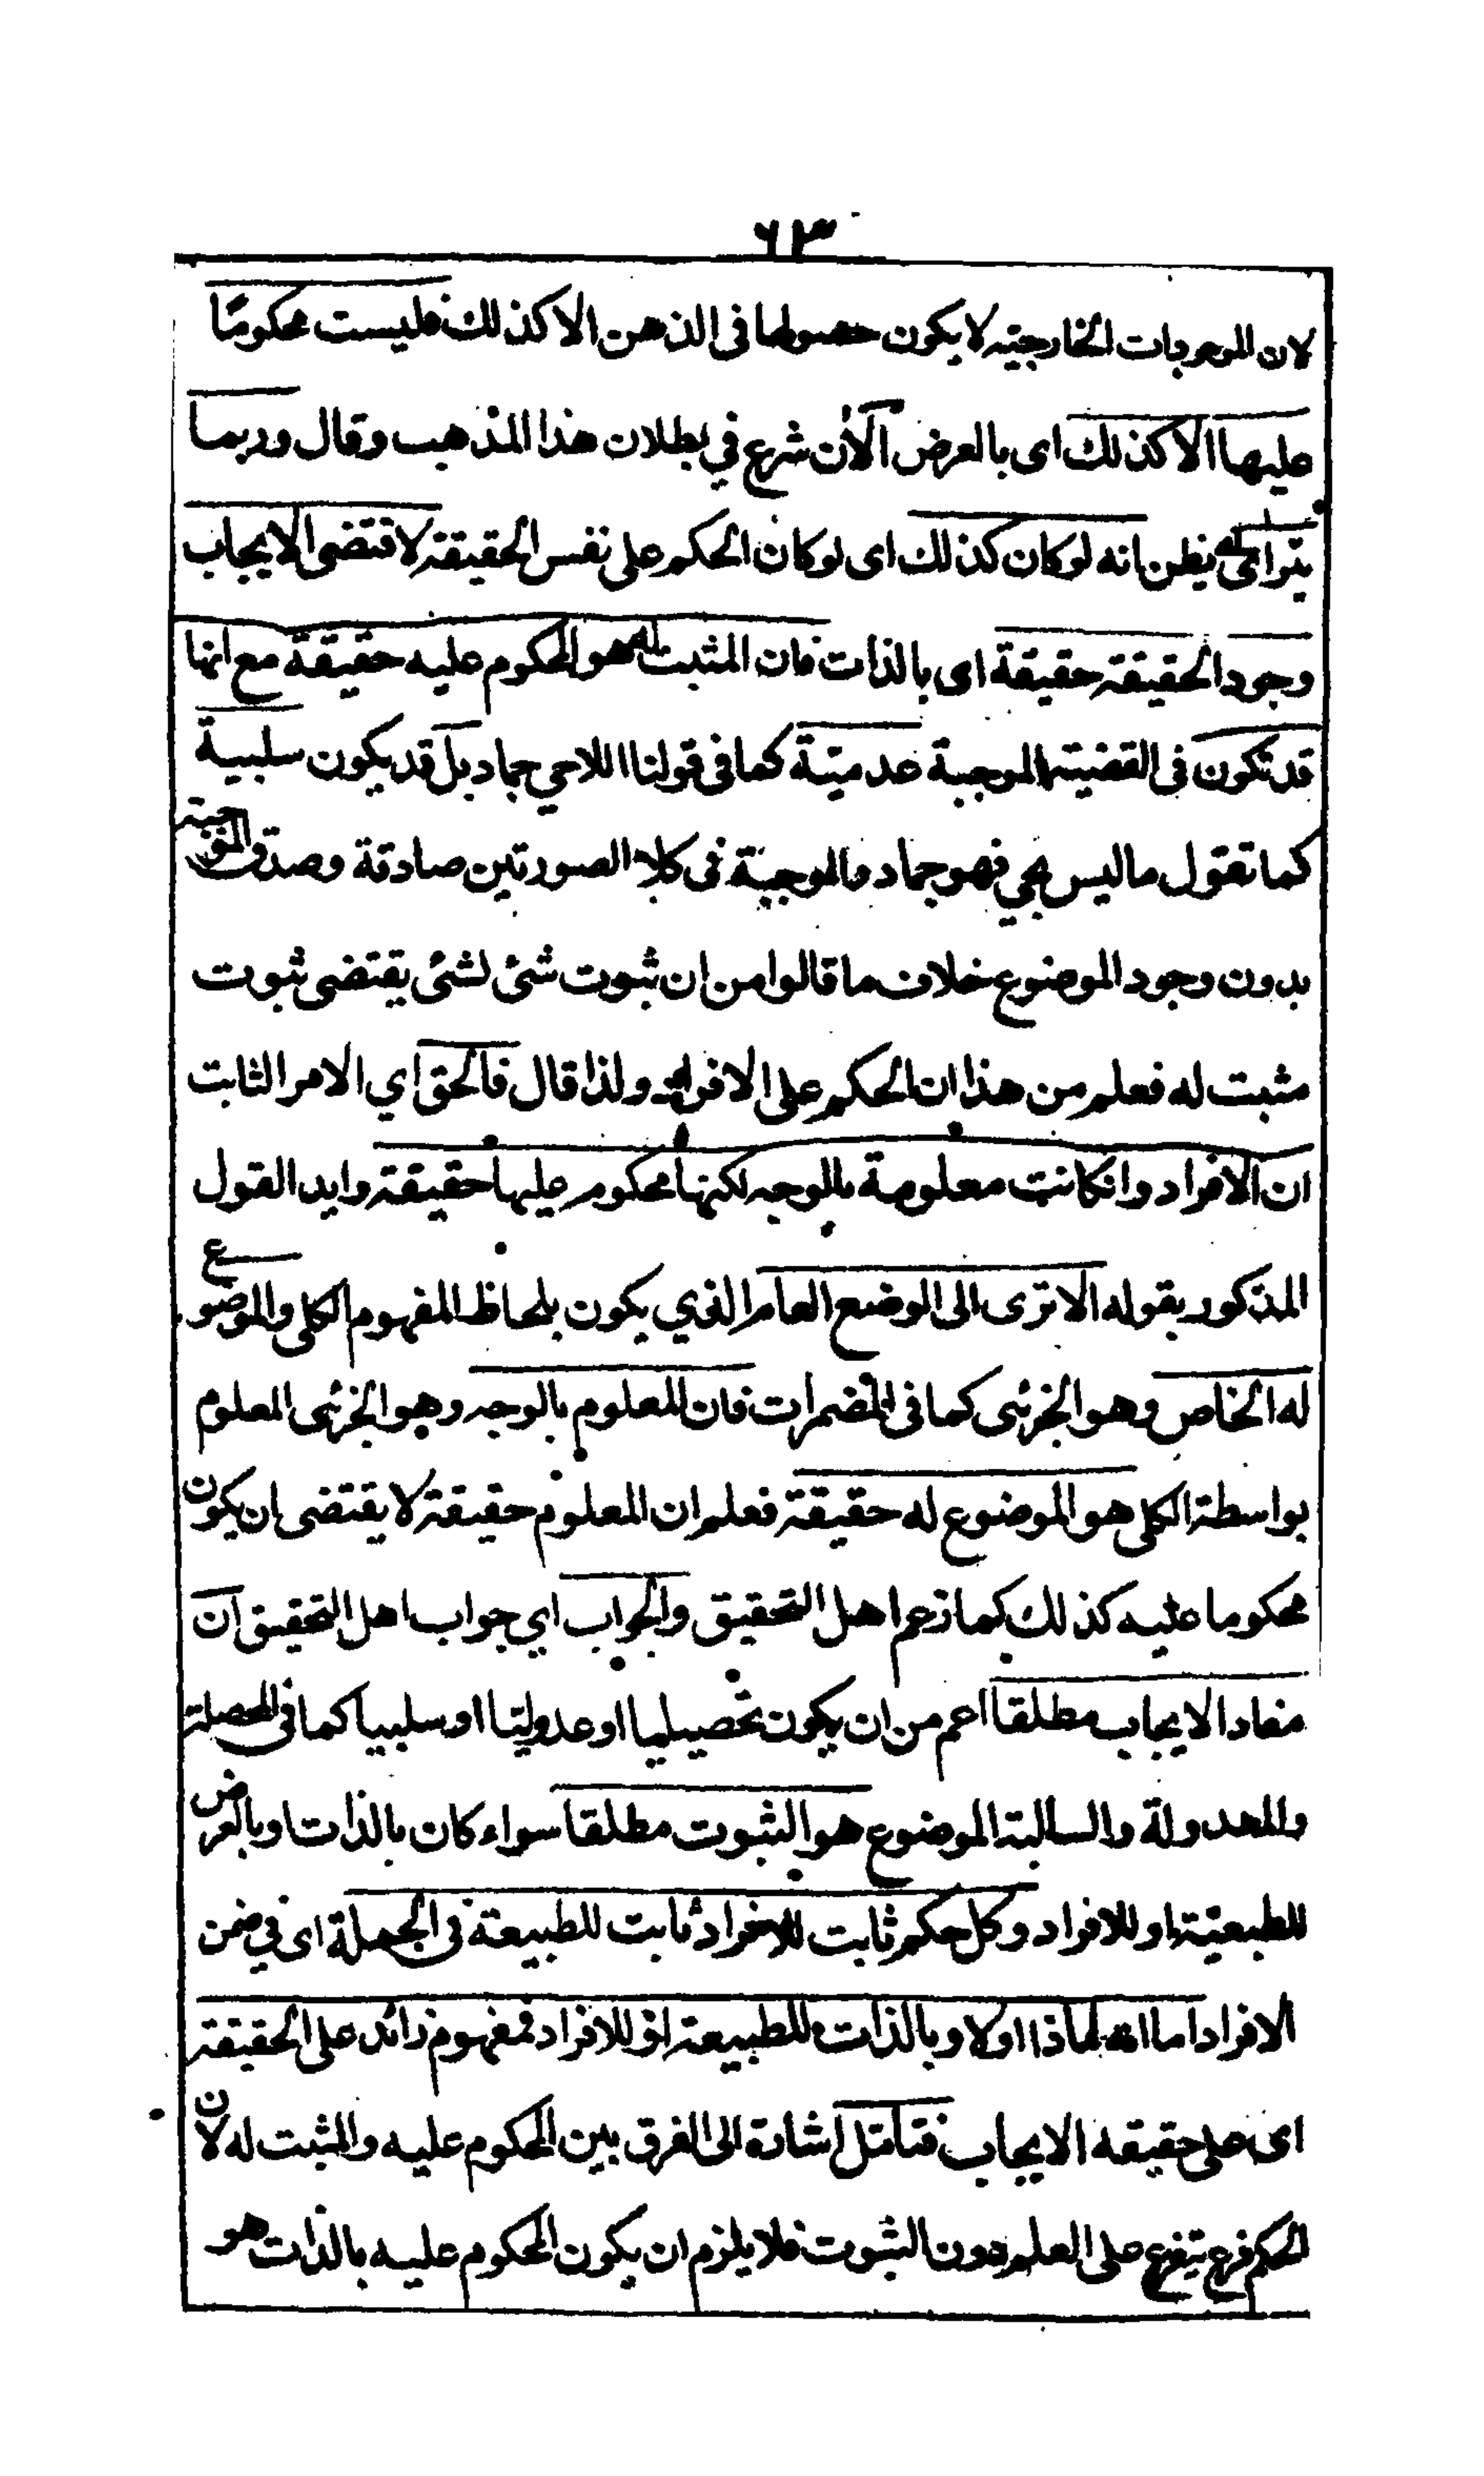 ٦٣
لان الموجودات الخارجية لا يكون حصولها فى الذهن الا كذلك فليست محكومًا
عليها الا كذلك اى بالعرض الآن شرع في بطلان هذا المذهب وقال وربما
يترااى يظن انه لو كان كذلك اى لو كان الحكم على نفس الحقيقة لاقتضى الايجاب
وجود الحقيقة حقيقة اى بالذات فان المثبت له هو المحكوم عليه حقيقة مع انها
قد تكون فى القضية الموجبة عدميّة كما فى قولنا اللاحي جماد بل قد يكون سلبية
كما تقول ما ليس بحي فهو جماد فالموجبة فى كلا الصورتين صادقة وصدق الموجبة
بدون وجود الموضوع خلاف ما قالوا من ان ثبوت شئ لشئ يقتضى ثبوت
مثبت له فعلم من هذا ان الحكم على الافراد ولذا قال فالحق اي الامر الثابت
ان الافراد وانكانت معلومة بالوجه لكنها محكوم عليها حقيقة وايد القول
المذكور بقوله الا ترى الى الوضع العام الذي يكون بلحاظ المفهوم الكلى والموضوع
له الخاص وهو الجزئى كما فى المضمرات فان المعلوم بالوجه وهو الجزئى المعلوم
بواسطة الكلى هو الموضوع له حقيقة فعلم ان المعلوم حقيقة لا يقتضى ان يكون
محكوما عليه كذلك كما زعم اهل التحقيق والجواب اي جواب اهل التحقيق ان
مفاد الايجاب مطلقا اعم من ان يكون تحصيليا او عدوليّا او سلبيا كما فى المحصلة
والمعدولة والسالبة الموضوع هو الثبوت مطلقا سواء كان بالذات او بالعرض
للطبعيّة او للافراد وكل حكم ثابت للافراد ثابت للطبيعة فى الجملة اى في ضمن
الافراد اما انه لماذا اولا وبالذات للطبيعة او للافراد فمفهوم زائد على الحقيقة
اى على حقيقه الايجاب فتامّل اشارة الى الفرق بين المحكوم عليه والمثبت له لان
الحكم فرع يتفرع على العلم دون الثبوت فلا يلزم ان يكون المحكوم عليه بالذات هو